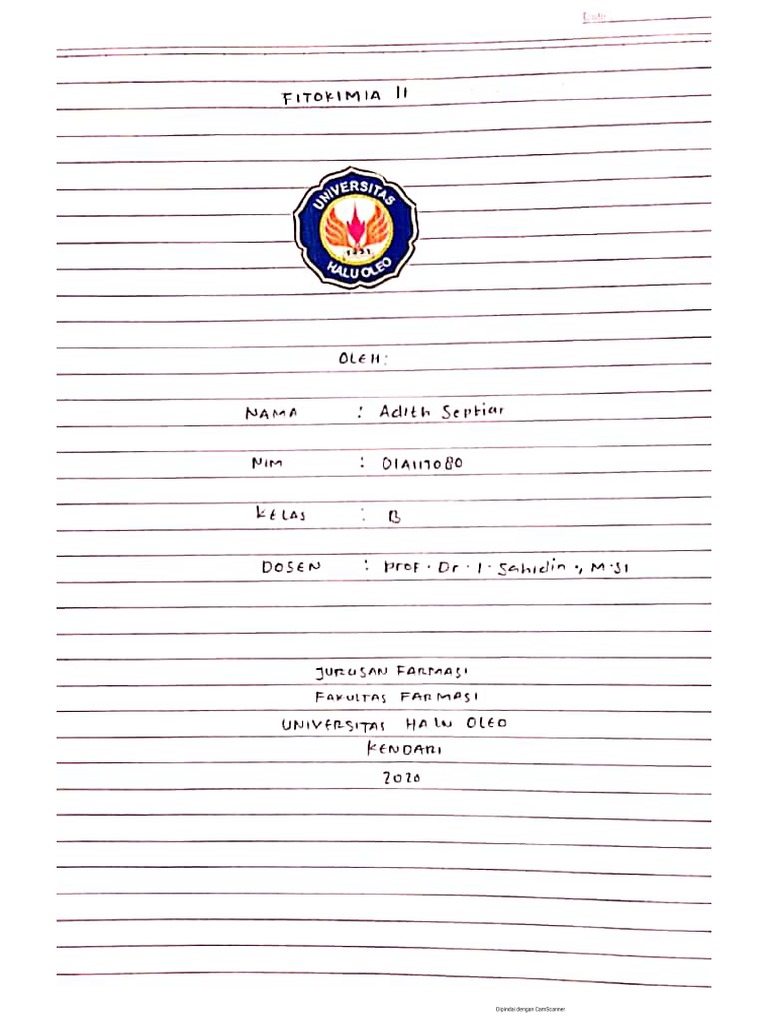 FITOKIMIA II
UNIVERSITAS
HALU OLEO
OLEH:
NAMA : Adith Septiar
NIM : O1A117080
KELAS : B
DOSEN : Prof. Dr. I. Sahidin., M.Si
JURUSAN FARMASI
FAKULTAS FARMASI
UNIVERSITAS HALU OLEO
KENDARI
2020
Dipindai dengan CamScanner